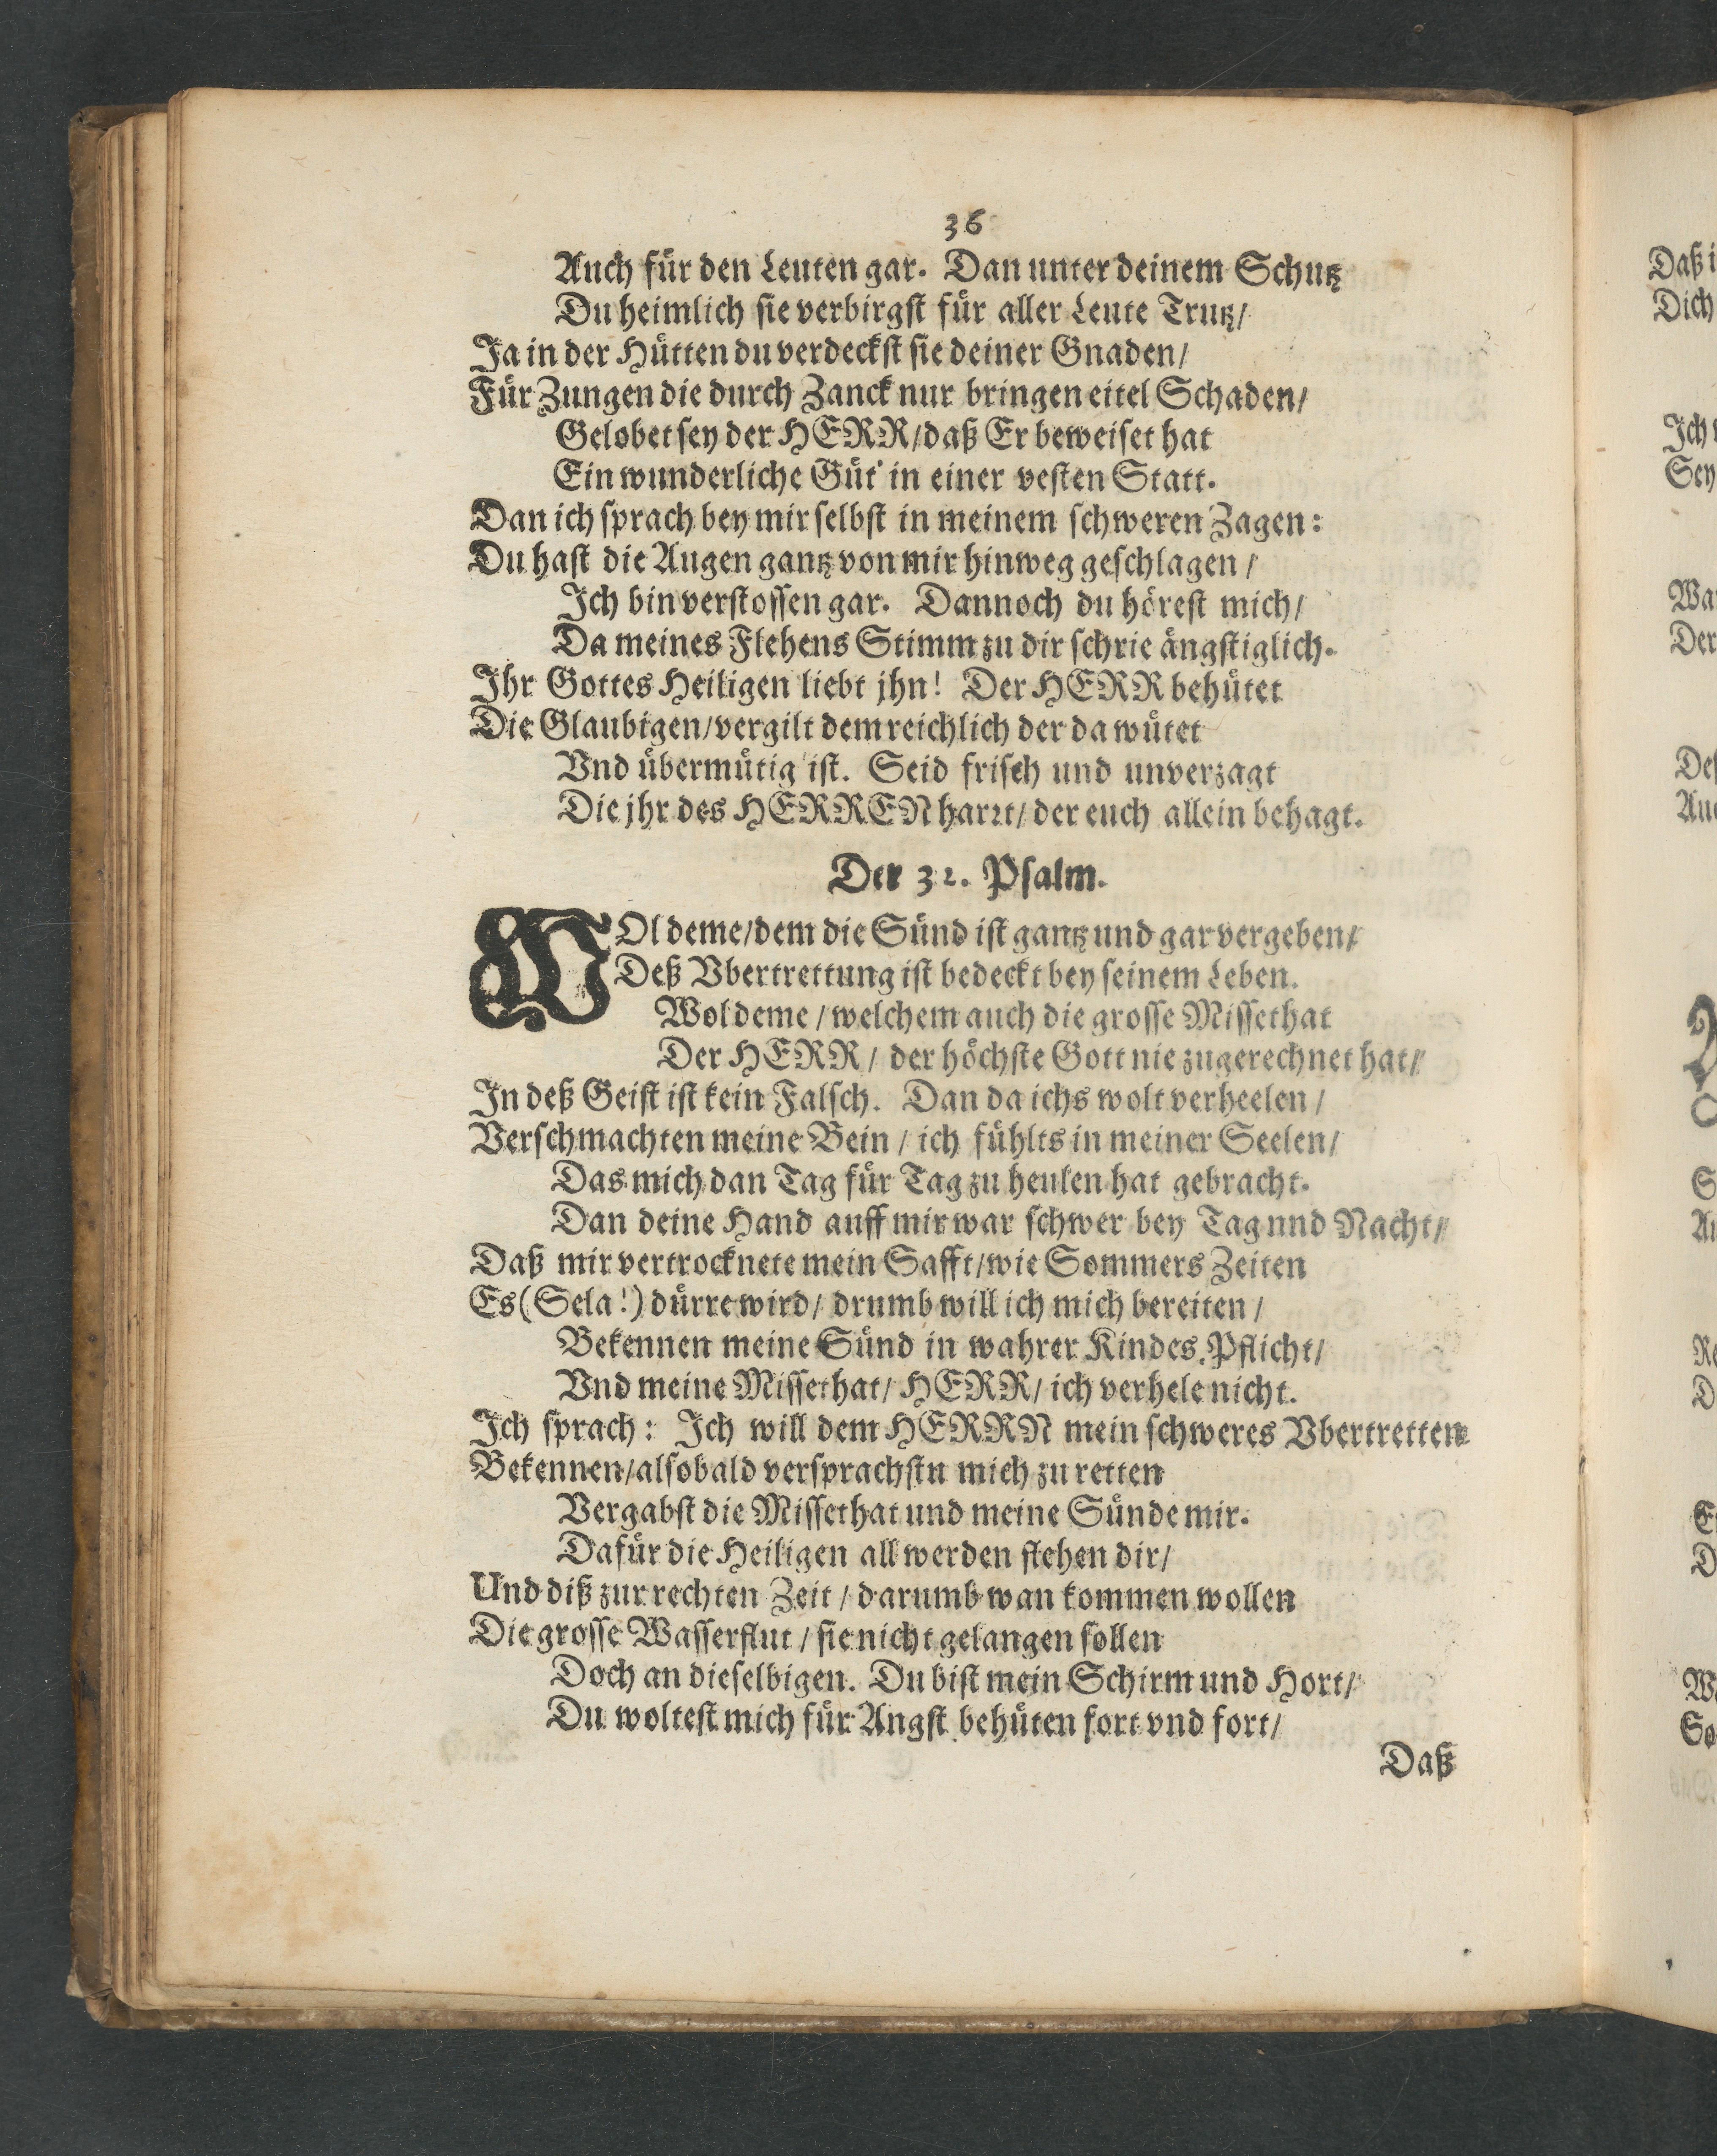 36
Auch für den Leuten gar. Dan unter deinem Schutz
Du heimlich sie verbirgst für aller Leute Trutz/
Ja in der Hütten du verdeckst sie deiner Gnaden/
Für Zungen die durch Zanck nur bringen eitel Schaden/
Gelobet sey der HERR/daß Er beweiset hat
Ein wunderliche Güt' in einer vesten Statt.
Dan ich sprach bey mir selbst in meinem schweren Zagen:
Du hast die Augen gantz von mir hinweg geschlagen/
Ich bin verstossen gar. Dannoch du hörest mich/
Da meines Flehens Stimm zu dir schrie ängstiglich.
Ihr Gottes Heiligen liebt jhn! Der HERR behütet
Die Glaubigen/vergilt dem reichlich der da wütet
Vnd übermütig ist. Seid frisch und unverzagt
Die jhr des HERREN harrt/der euch allein behagt.
Der 32. Psalm.
WOl deme/dem die Sünd ist gantz und gar vergeben/
Deß Vbertrettung ist bedeckt bey seinem Leben.
Wol deme/welchem auch die grosse Missethat
Der HERR/der höchste Gott nie zugerechnet hat/
In deß Geist ist kein Falsch. Dan da ichs wolt verheelen/
Verschmachten meine Bein/ich fühlts in meiner Seelen/
Das mich dan Tag für Tag zu heulen hat gebracht.
Dan deine Hand auff mir war schwer bey Tag und Nacht/
Daß mir vertrocknete mein Safft/wie Sommers Zeiten
Es (Sela!) dürre wird/drumb will ich mich bereiten/
Bekennen meine Sünd in wahrer Kindes.Pflicht/
Vnd meine Missethat/HERR/ich verhele nicht.
Ich sprach: Ich will dem HERRN mein schweres Vbertretten
Bekennen/alsobald versprachstu mich zu retten
Vergabst die Missethat und meine Sünde mir.
Dafür die Heiligen all werden flehen dir/
Und diß zur rechten Zeit/darumb wan kommen wollen
Die grosse Wasserflut/sie nicht gelangen sollen
Doch an dieselbigen. Du bist mein Schirm und Hort/
Du woltest mich für Angst behüten fort vnd fort/
Daß
Daß i
Dich
Sey
Der